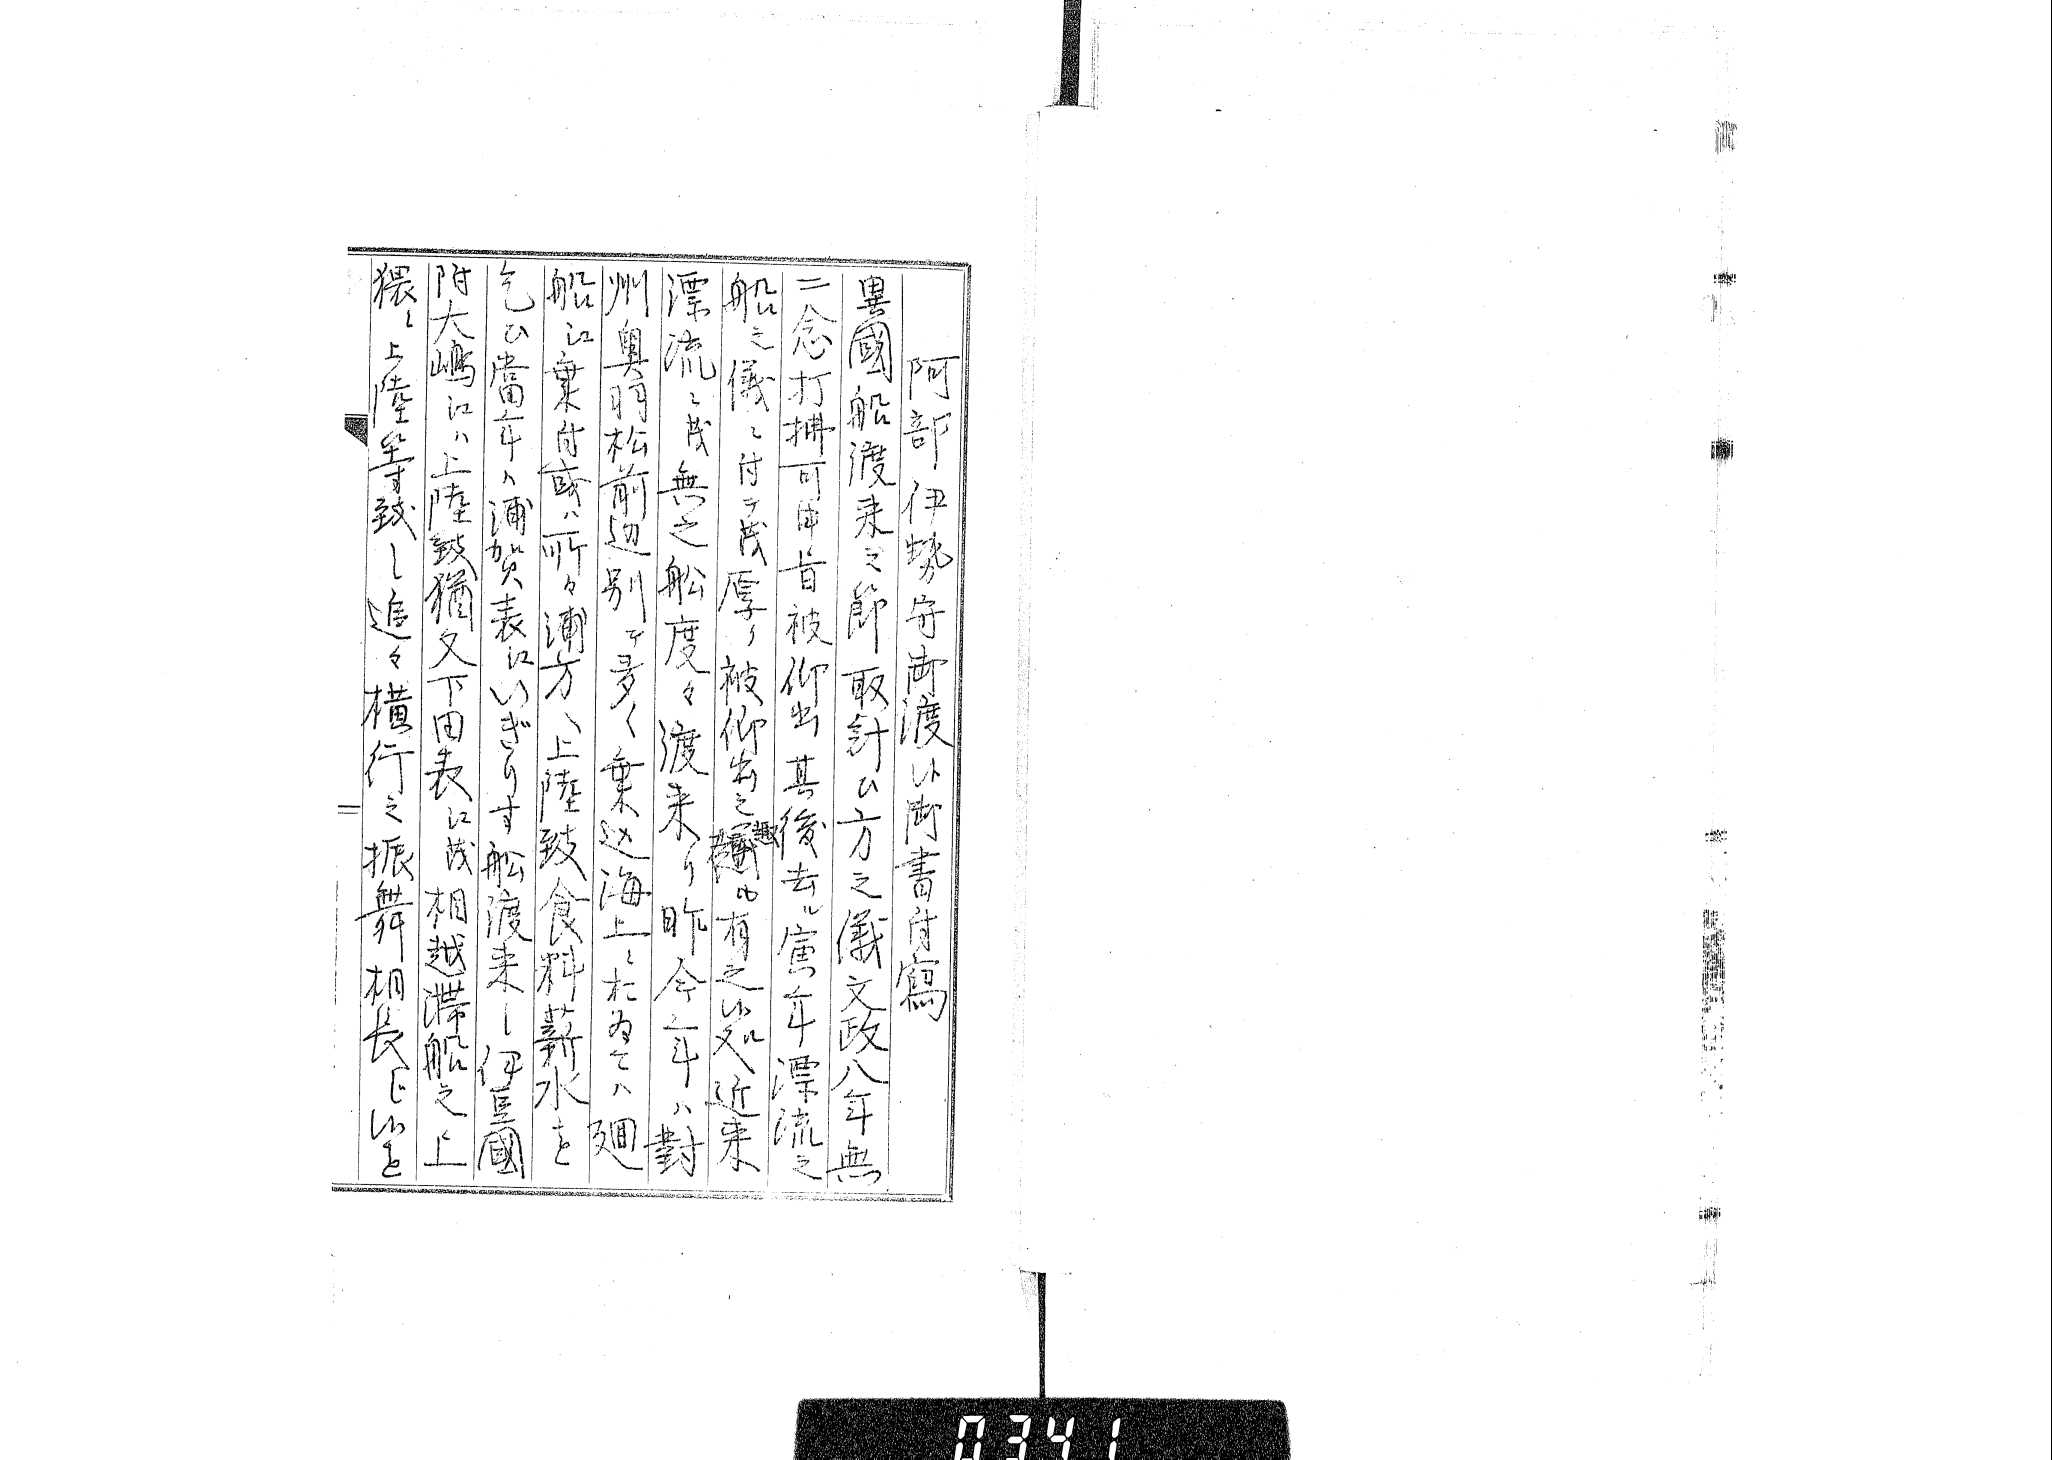 阿部伊勢守御渡候御書付寫
異國船渡来之節取計ひ方之儀文政八年無
二念打拂可申旨被仰出其後去ル寅年漂流之
船之儀ニ付テ茂厚ク被仰出之趣も有之候処近来
漂流ニ茂無之船度々渡来り昨今年ハ對
州奥羽松前辺別テ多く乗込海上ニおゐてハ廻
船江乗付或ハ所々浦方へ上陸致食料薪水を
乞ひ當年ハ浦賀表江いぎりす船渡来し伊豆國
附大嶋江ハ上陸致猶又下田表江茂相越滞船之上
猥ニ上陸等致し追々横行之振舞相長じ候を
0341